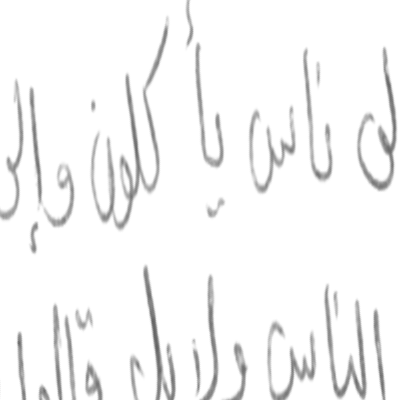 لى ناس يأكلون وإلى
الناس ولا بل قالوا